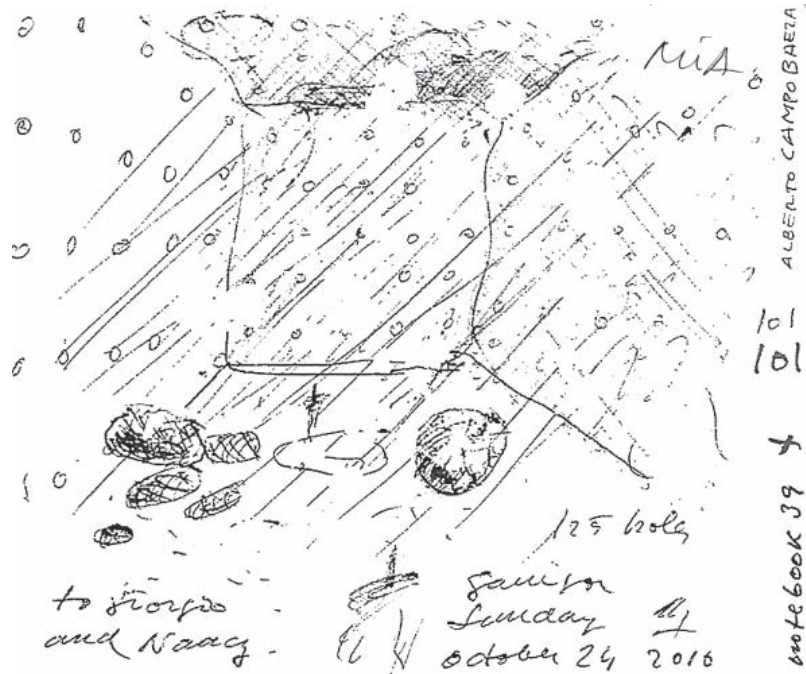 MiA
ALBERTO CAMPO BAEZA
101
101
notebook 39
holes
to Giorgio
and Nancy.
Sunday
october 24 2010